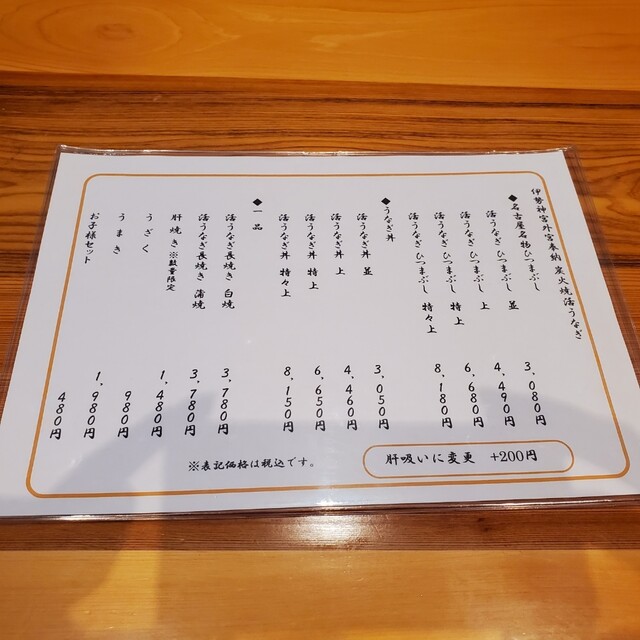 伊勢神宮外宮奉納 炭火焼活うなぎ
◆名古屋名物ひつまぶし
活うなぎひつまぶし 並 3,080円
活うなぎひつまぶし 上 4,490円
活うなぎひつまぶし 特上 6,680円
活うなぎひつまぶし 特々上 8,180円
◆うなぎ丼
活うなぎ丼 並 3,050円
活うなぎ丼 上 4,460円
活うなぎ丼 特上 6,650円
活うなぎ丼 特々上 8,150円
◆一品
活うなぎ長焼き 白焼 3,780円
活うなぎ長焼き 蒲焼 3,780円
肝焼き ※数量限定 1,480円
うざく 980円
うまき 1,980円
お子様セット 480円
肝吸いに変更 +200円
※表記価格は税込です。